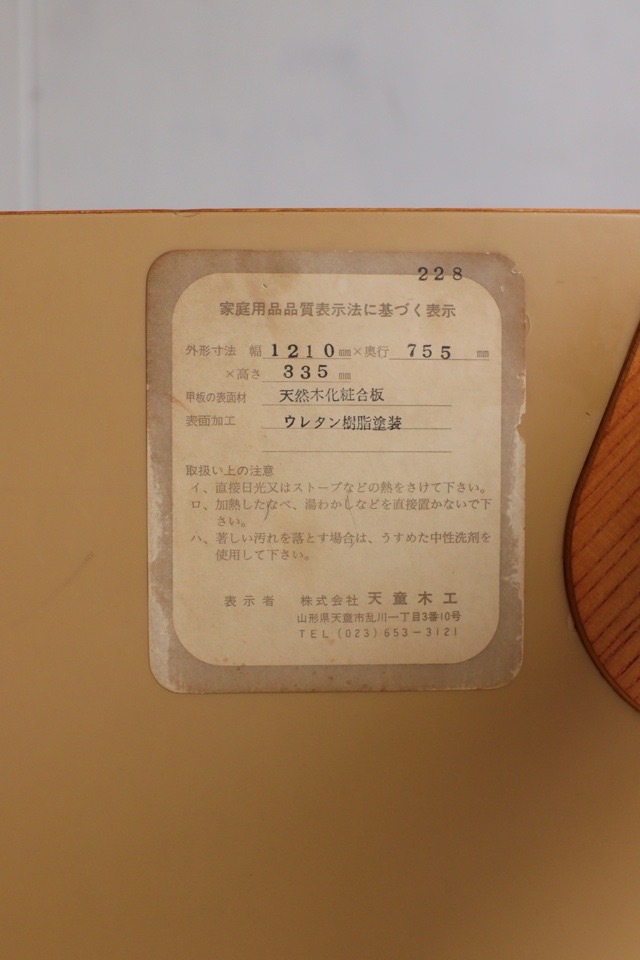 228
家庭用品品質表示法に基づく表示
外形寸法 幅 1210 ㎜×奥行 755 ㎜
×高さ 335 ㎜
甲板の表面材 天然木化粧合板
表面加工 ウレタン樹脂塗装
取扱い上の注意
イ、直接日光又はストーブなどの熱をさけて下さい。
ロ、加熱したなべ、湯わかしなどを直接置かないで下
さい。
ハ、著しい汚れを落とす場合は、うすめた中性洗剤を
使用して下さい。
表示者 株式会社 天童木工
山形県天童市乱川一丁目3番10号
TEL(023)653-3121